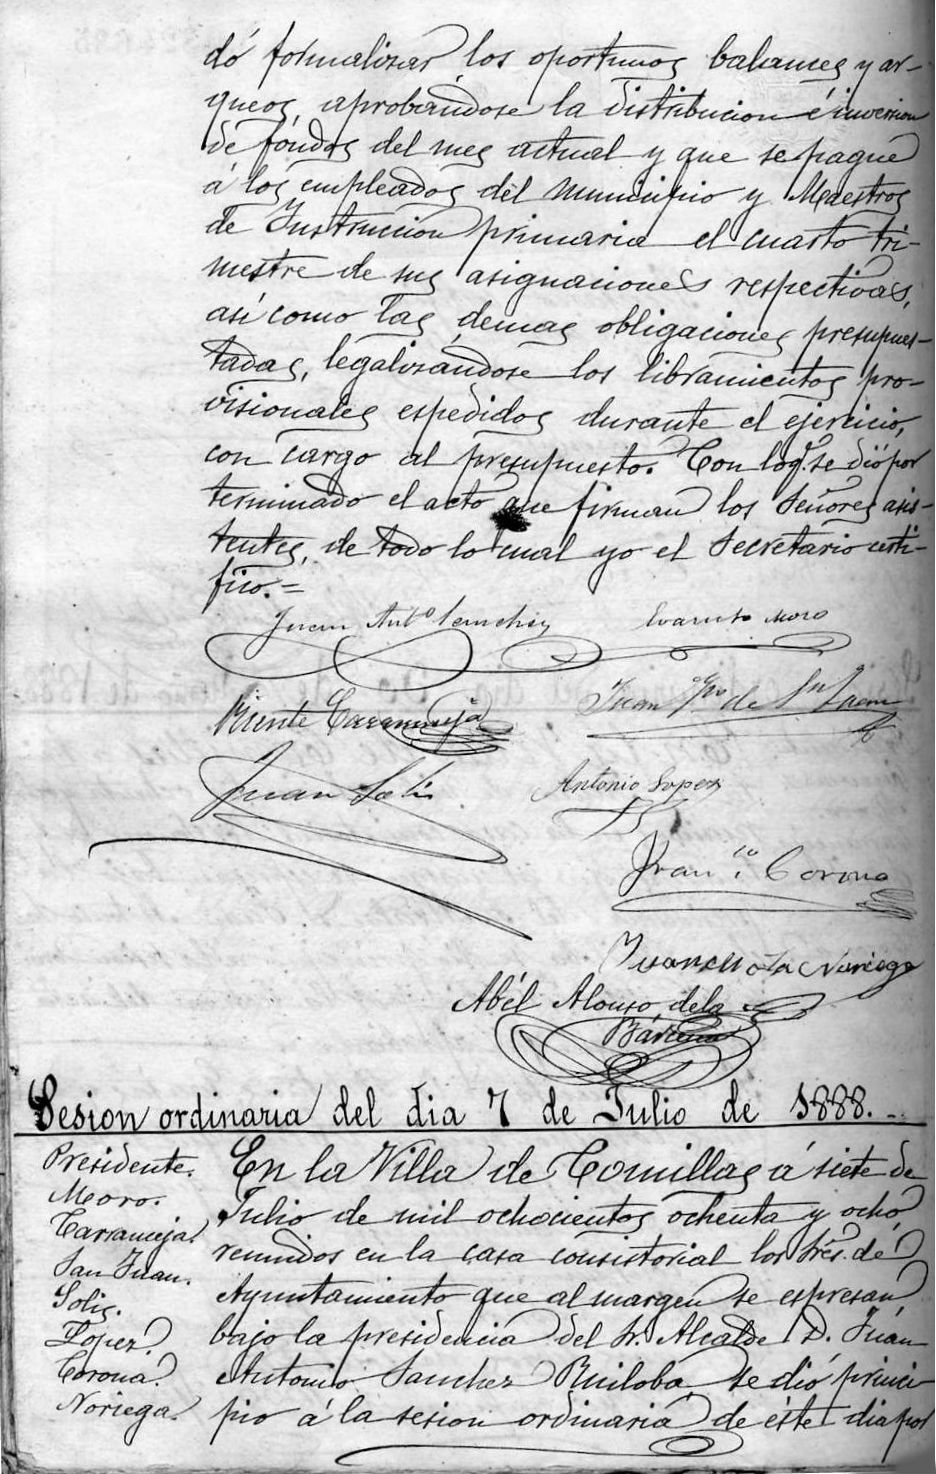 dó formalizar los oportunos balances y ar-
queos, aprobándose la distribucion é inversion
de fondos del mes actual y que se pague
á los empleados del municipio y Maestros
de Instruccion primaria el cuarto tri-
mestre de sus asignaciones respectivas,
asi como las demas obligaciones presupues-
tadas, legalizándose los libramientos pro-
visionales espedidos durante el ejercicio,
con cargo al presupuesto. Con lo q.e se dió por
terminado el acto que firman los Señores asis-
tentes, de todo lo cual yo el Secretario certi-
fico.=
Juan Ant.o Sanchez Evaristo Moro
Vicente Carranceja Juan de Sn Juan
Juan Solis Antonio Lopez
Fran.co Corona
Juan de la Noriega
Abél Alonso de la
Bárcena
Sesion ordinaria del dia 7 de Julio de 1888.-
Presidente.
Moro.
Carranceja
San Juan.
Solis.
Lopez.
Corona.
Noriega.
En la Villa de Comillas á siete de
Julio de mil ochocientos ochenta y ocho
reunidos en la casa consistorial los Sres. de
Ayuntamiento que al margen se espresan
bajo la presidencia del Sr. Alcalde D. Juan
Antonio Sanchez Ruiloba, se dió princi-
pio á la sesion ordinaria de éste dia por